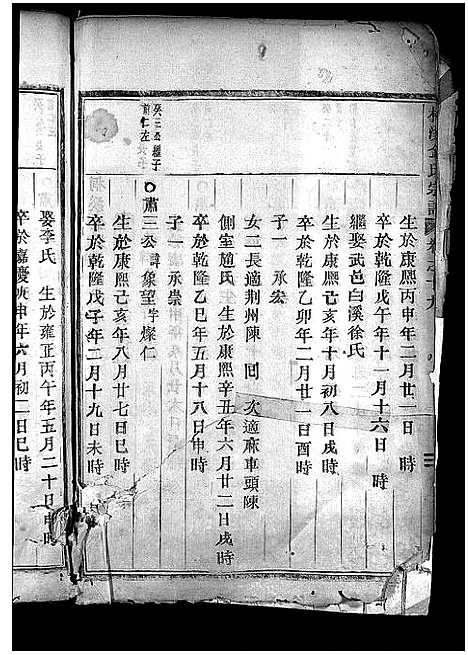 金氏宗譜
生於康熙丙申年二月廿一日 時
卒於乾隆戊午年十一月十六日 時
繼娶武邑白溪徐氏
生於康熙己亥年十月初八日戌時
卒於乾隆乙卯年二月廿一日酉時
子一 承宏
女二長適荆州陳 回 次適麻車頭陳
側室趙氏 生於康熙辛丑年六月廿二日戌時
卒於乾隆乙巳年五月十八日申時
子一 承崇
癸三公繼子
前仁左
肅三公諱象望字燦仁
生於康熙己亥年八月廿七日巳時
卒於乾隆戊子年二月十九日未時
娶李氏 生於雍正丙午年五月二十日申時
卒於嘉慶庚申年六月初二日巳時